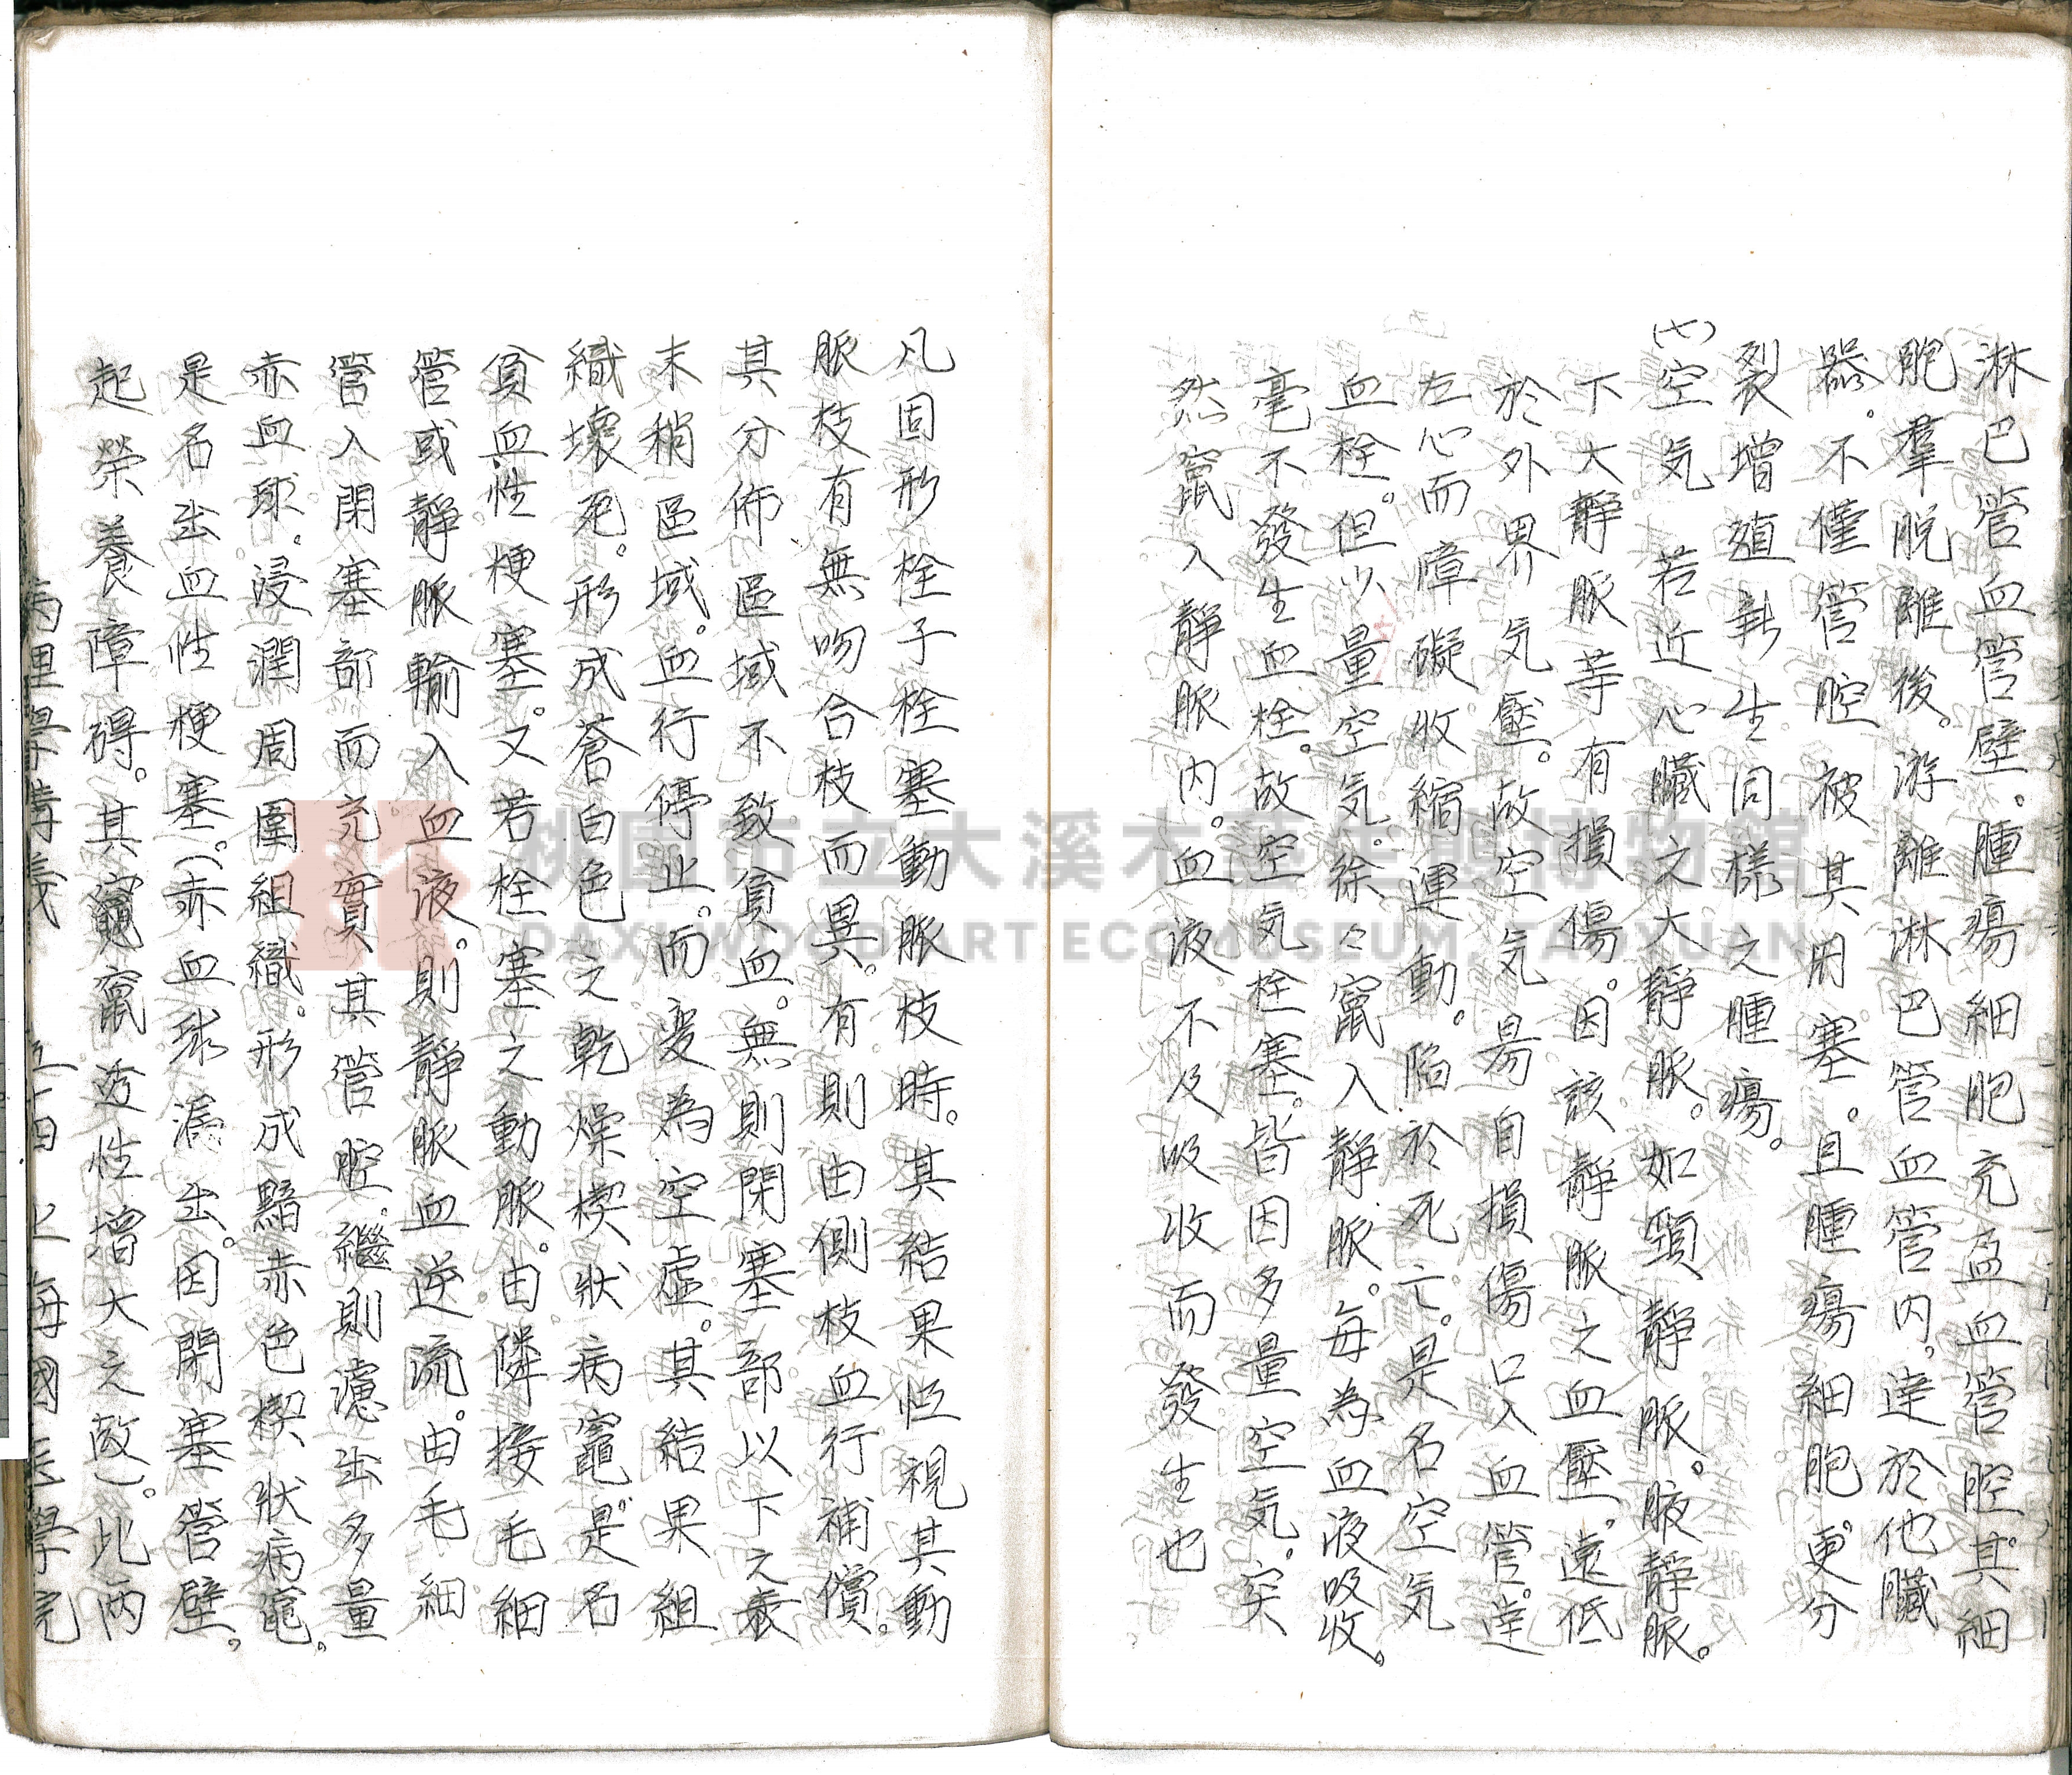 淋巴管血管壁。腫瘍細胞充盈血管腔。其細
胞羣脫離後。游離淋巴管血管內。達於他臟
器。不僅管腔被其閉塞。且腫瘍細胞。更分
裂增殖新生同樣之腫瘍。
(七)空気 若近心臟之大靜脈。如頸靜脈。腋靜脈。
下大靜脈等有損傷。因該靜脈之血壓。遠低
於外界気壓。故空気易自損傷口入血管。達
左心而障礙收縮運動。陷於死亡。是名空気
血栓。但少量空気。徐々竄入靜脈。每為血液吸收。
毫不發生血栓。故空気栓塞。皆因多量空気。突
然竄入靜脈內。血液不及吸收而發生也
凡固形栓子栓塞動脈枝時。其結果恒視其動
脈枝有無吻合枝而異。有則由側枝血行補償。
其分佈區域不致貧血。無則閉塞部以下之
末稍區域。血行停止。而变為空虛。其結果組
織壞死。形成蒼白色之乾燥楔狀病竈。是名
貧血性梗塞。又若栓塞之動脈。由隣接毛細
管或靜脈輸入血液。則靜脈血逆流。由毛細
管入閉塞部而充實其管腔。繼則濾出多量
赤血球。浸潤周圍組織。形成黯赤色楔狀病竈。
是名出血性梗塞。(赤血球漏出。因閉塞管壁。
起榮養障碍。其竄透性增大之故)。此兩
病理學講義 五四 上海國医學院
桃園市立大溪木藝生態博物館
DAXI WOOD ART ECOMUSEUM, TAOYUAN